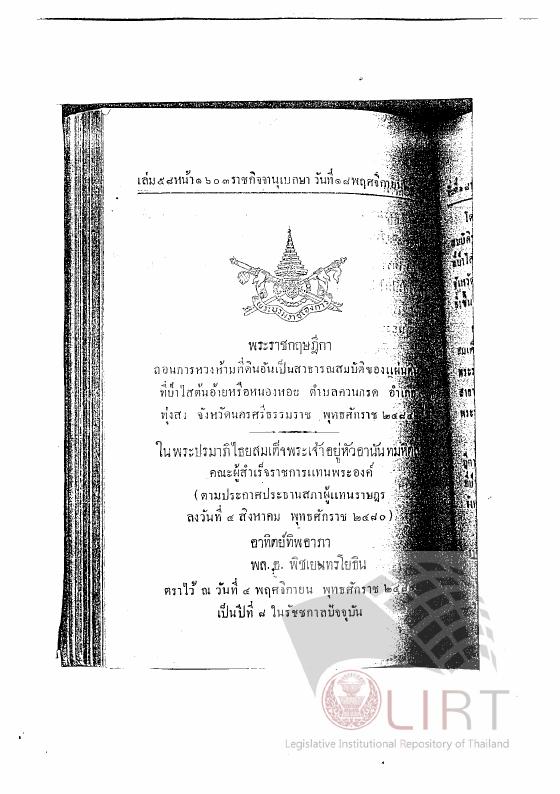 เล่ม ๕๘ หน้า ๑๖๐๓ ราชกิจจานุเบกษา วันที่ ๑๘ พฤศจิกายน
พระบรมราชโองการ
พระราชกฤษฎีกา
ถอนการหวงห้ามที่ดินอันเป็นสาธารณสมบัติของแผ่นดิน
ที่ป่าไสต้นอ้ายหรือหนองหอย ตำบลควนกรด อำเภอ
ทุ่งสง จังหวัดนครศรีธรรมราช พุทธศักราช ๒๔๘๔
ในพระปรมาภิไธยสมเด็จพระเจ้าอยู่หัวอานันทมหิดล
คณะผู้สำเร็จราชการแทนพระองค์
(ตามประกาศประธานสภาผู้แทนราษฎร
ลงวันที่ ๔ สิงหาคม พุทธศักราช ๒๔๘๐)
อาทิตย์ทิพอาภา
พล.อ. พิชเยนทรโยธิน
ตราไว้ ณ วันที่ ๔ พฤศจิกายน พุทธศักราช ๒๔๘๔
เป็นปีที่ ๘ ในรัชชกาลปัจจุบัน
LIRT
Legislative Institutional Repository of Thailand